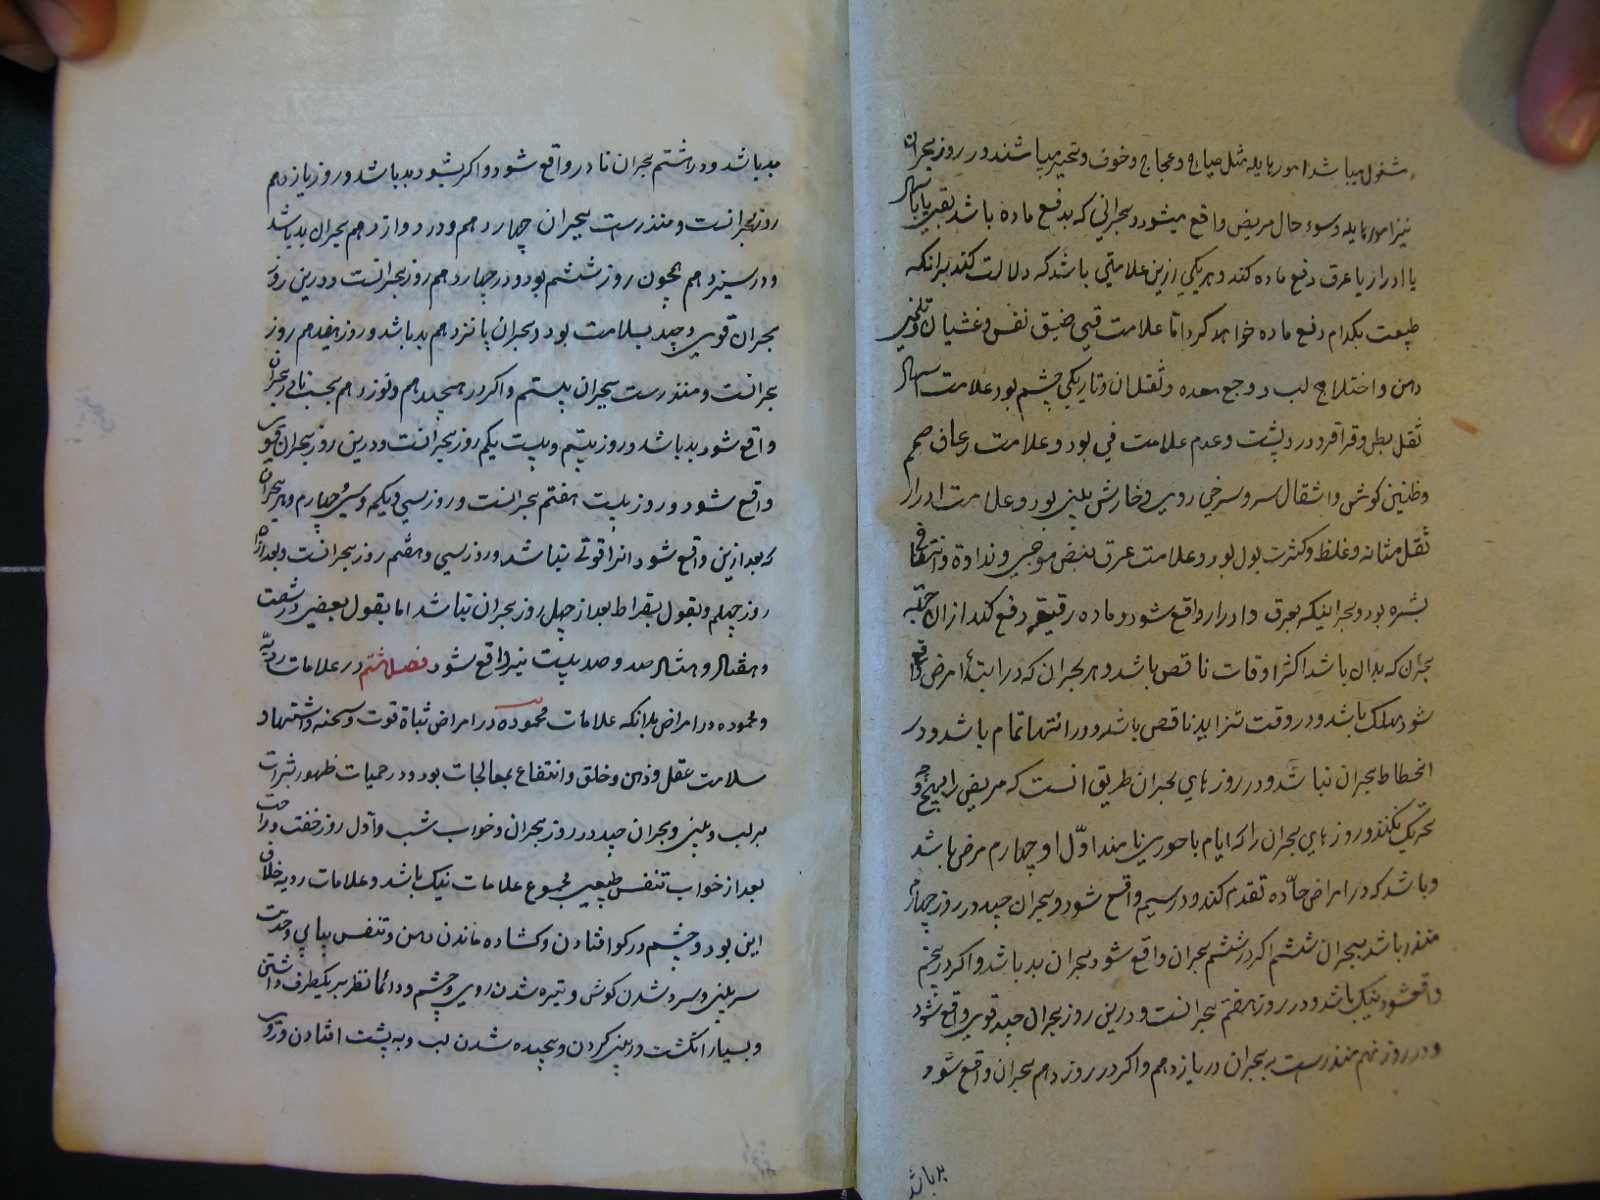 مشغول میباشد امور هایله مثل صیاح و عجاج و خوف و تحیر میباشند در روز بحران
نیز امور هایله و سوء حال مریض واقع میشود و بحرانی که بدفع ماده باشد بقی یا باسهال
یا ادرار یا عرق دفع ماده کند و هریکی ازین علامتی باشد که دلالت کند برانکه
طبیعت بکدام دفع ماده خواهد کرد اما علامت قیی ضیق نفس و غشیان و تلخی
دهن و اختلاج لب و وجع معده و ثقلان و تاریکی چشم بود علامت اسهال
ثقل بطن و قراقر و درد پشت و عدم علامت قی بود و علامت رعاف صمم
و طنین کوش و اشتقال سر و سرخی روی و خارش بینی بود و علامت ادرار
ثقل مثانه و غلظ و کثرت بول بود و علامت عرق نبض موجی و نداوة و انتفاخ
بشره بود و بحرانیکه بعرق و ادرار واقع شود و ماده رقیقه دفع کند ازان جهة
بحران که بدان باشد اکثر اوقات ناقص باشد و هر بحران که در ابتدأ امرض واقع
شود مهلک باشد و در وقت تزاید ناقص باشد و در انتها تمام باشد و در
انحطاط بحران نباشد و در روز های بحران طریق انست که مریض را بهیچ وجه
تحریک نکنند و روز های بحران را که ایام باحوری نامند اوّل او چهارم مرض باشد
و باشد که در امراض حادّه تقدم کند و در سیم واقع شود و بحران جید در روز چهارم
منذر باشد ببحران ششم اکر در ششم بحران واقع شود بحران بد باشد و اکر در پنجم
واقعشود نیک باشد و در روز هفتم بحرانست و درین روز بحران جید قوی واقع شود
و در روز نهم منذرست به بحران در یازدهم و اکر در روز دهم بحران واقع شود
بد باشد
بد باشد و در هشتم بحران نادر واقع شود و اکر بشود بد باشد و روز یازدهم
روز بحرانست و منذرست ببحران چهاردهم و در دوازدهم بحران بد باشد
و در سیزدهم همچون روز ششم بود و در چهاردهم روز بحرانست و درین روز
بحران قوی و جید بسلامت بود و بحران پانزدهم بد باشد و روز هفدهم روز
بحرانست و منذرست ببحران بیستم و اکر در هیجدهم و نوزدهم بحران
واقع شود بد باشد و روز بیستم و بیست یکم روز بحرانست و درین روز بحران قوی
واقع شود و روز بیست هفتم بحرانست و روز سی و یکم و سی و چهارم و هر بحران
که بعد ازین واقع شود انرا قوتی نباشد و روز سی و هفتم روز بحرانست و بعد ازان
روز چهلم و بقول بقراط بعد از چهل روز بحران نباشد اما بقول بعضی در شصت
و هفتاد و هشتاد و صد و صد بیست نیز واقع شود فصل هشتم در علامات ردیّه
و محموده در امراض بدانکه علامات محموده در امراض ثباة قوت و سحنه و اشتها و
سلامت عقل و ذهن و خلق و انتفاع بمعالجات بود و در حمیات ظهور بثرات
بر لب و بینی و بحران جید در روز بحران و خواب شب و اول روز خفت و راحت
بعد از خواب تنفس طبیعی مجموع علامات نیک باشد و علامات ردیه خلاف
این بود و چشم در کو افتادن و کشاده ماندن دهن و تنفس پیاپی و حدّت
سر بینی و سرد شدن کوش و تیره شدن روی و چشم و دائما نظر بر یکطرف داشتن
و بسیار انکشت در بینی کردن و پیچیده شدن لب و به پشت افتادن و روی